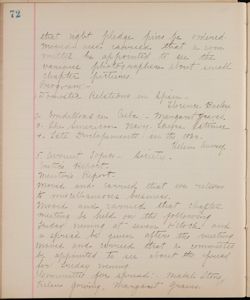 72
that eight pledge pins be ordered.
Moved and carried that a com
mittee be appointed to see the
various photographers about small
chapter pictures.
Program -
1. Transfer Relations in Spain -
Florence
2. Conditions in Cuba - Margaret
3. The American Navy -
4. Late Developments in the War
Helen
5. Current Topics - Society.
Critics Report.
Mentor's Report.
Moved and carried that we return
to miscellaneous business.
Moved and carried that chapter
meeting be held on the following
Friday evening at seven o'clock and
a spread be given after the meeting
Moved and carried that a committee
be appointed to see about the spread
for Friday evening.
Committee for spread: - Mabel
Helen Margaret